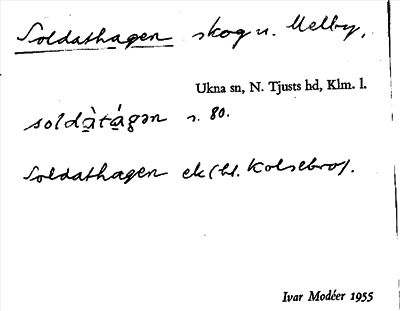 Soldathagen skog u. Melby,
Ukna sn, N. Tjusts hd, Klm. l.
soldà̱tá̱gən s. 80.
Soldathagen ek (bl. Kolsebro).
Ivar Modéer 1955